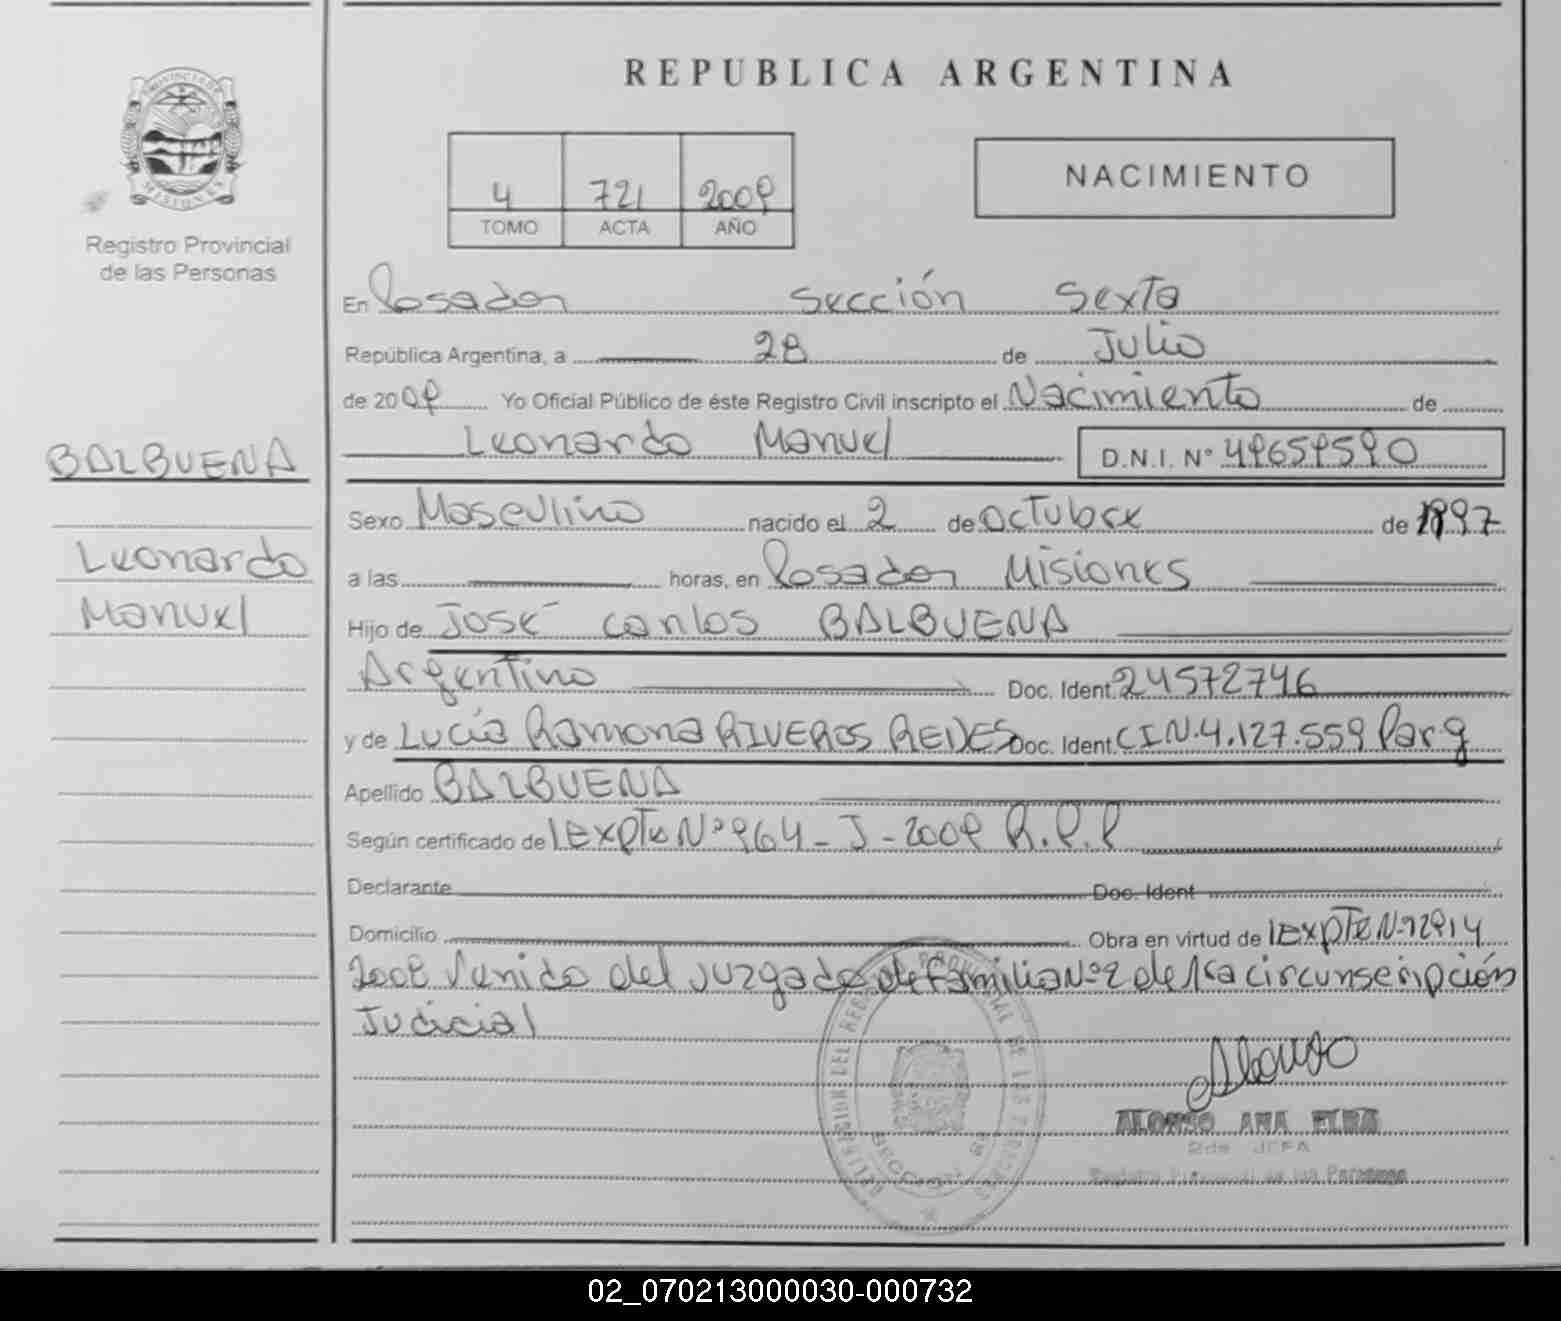 REPUBLICA ARGENTINA
PROVINCIA DE
MISIONES
Registro Provincial
de las Personas
4 721 2009
TOMO ACTA AÑO
NACIMIENTO
En Posadas Sección Sexta
República Argentina, a 28 de Julio
de 2009 Yo Oficial Público de éste Registro Civil inscripto el Nacimiento de
BALBUENA
Leonardo
Manuel
Leonardo Manuel D.N.I. N° 49659590
Sexo Masculino nacido el 2 de Octubre de 1997
a las horas, en Posadas Misiones
Hijo de José Carlos BALBUENA
Argentino Doc. Ident. 24572746
y de Lucía Ramona RIVEROS Doc. Ident. C.I.N. 4.127.559 Parg
Apellido BALBUENA
Según certificado de Expte Nº 964 - J - 2009 R.P.P
Declarante Doc. Ident
Domicilio Obra en virtud de Expte Nº
Venido del Juzgado de Familia Nº 2 de 1ra circunscripción
Judicial
SECCION
ALONSO ANA
2da JEFA
Registro Provincial de las Personas
02_070213000030-000732